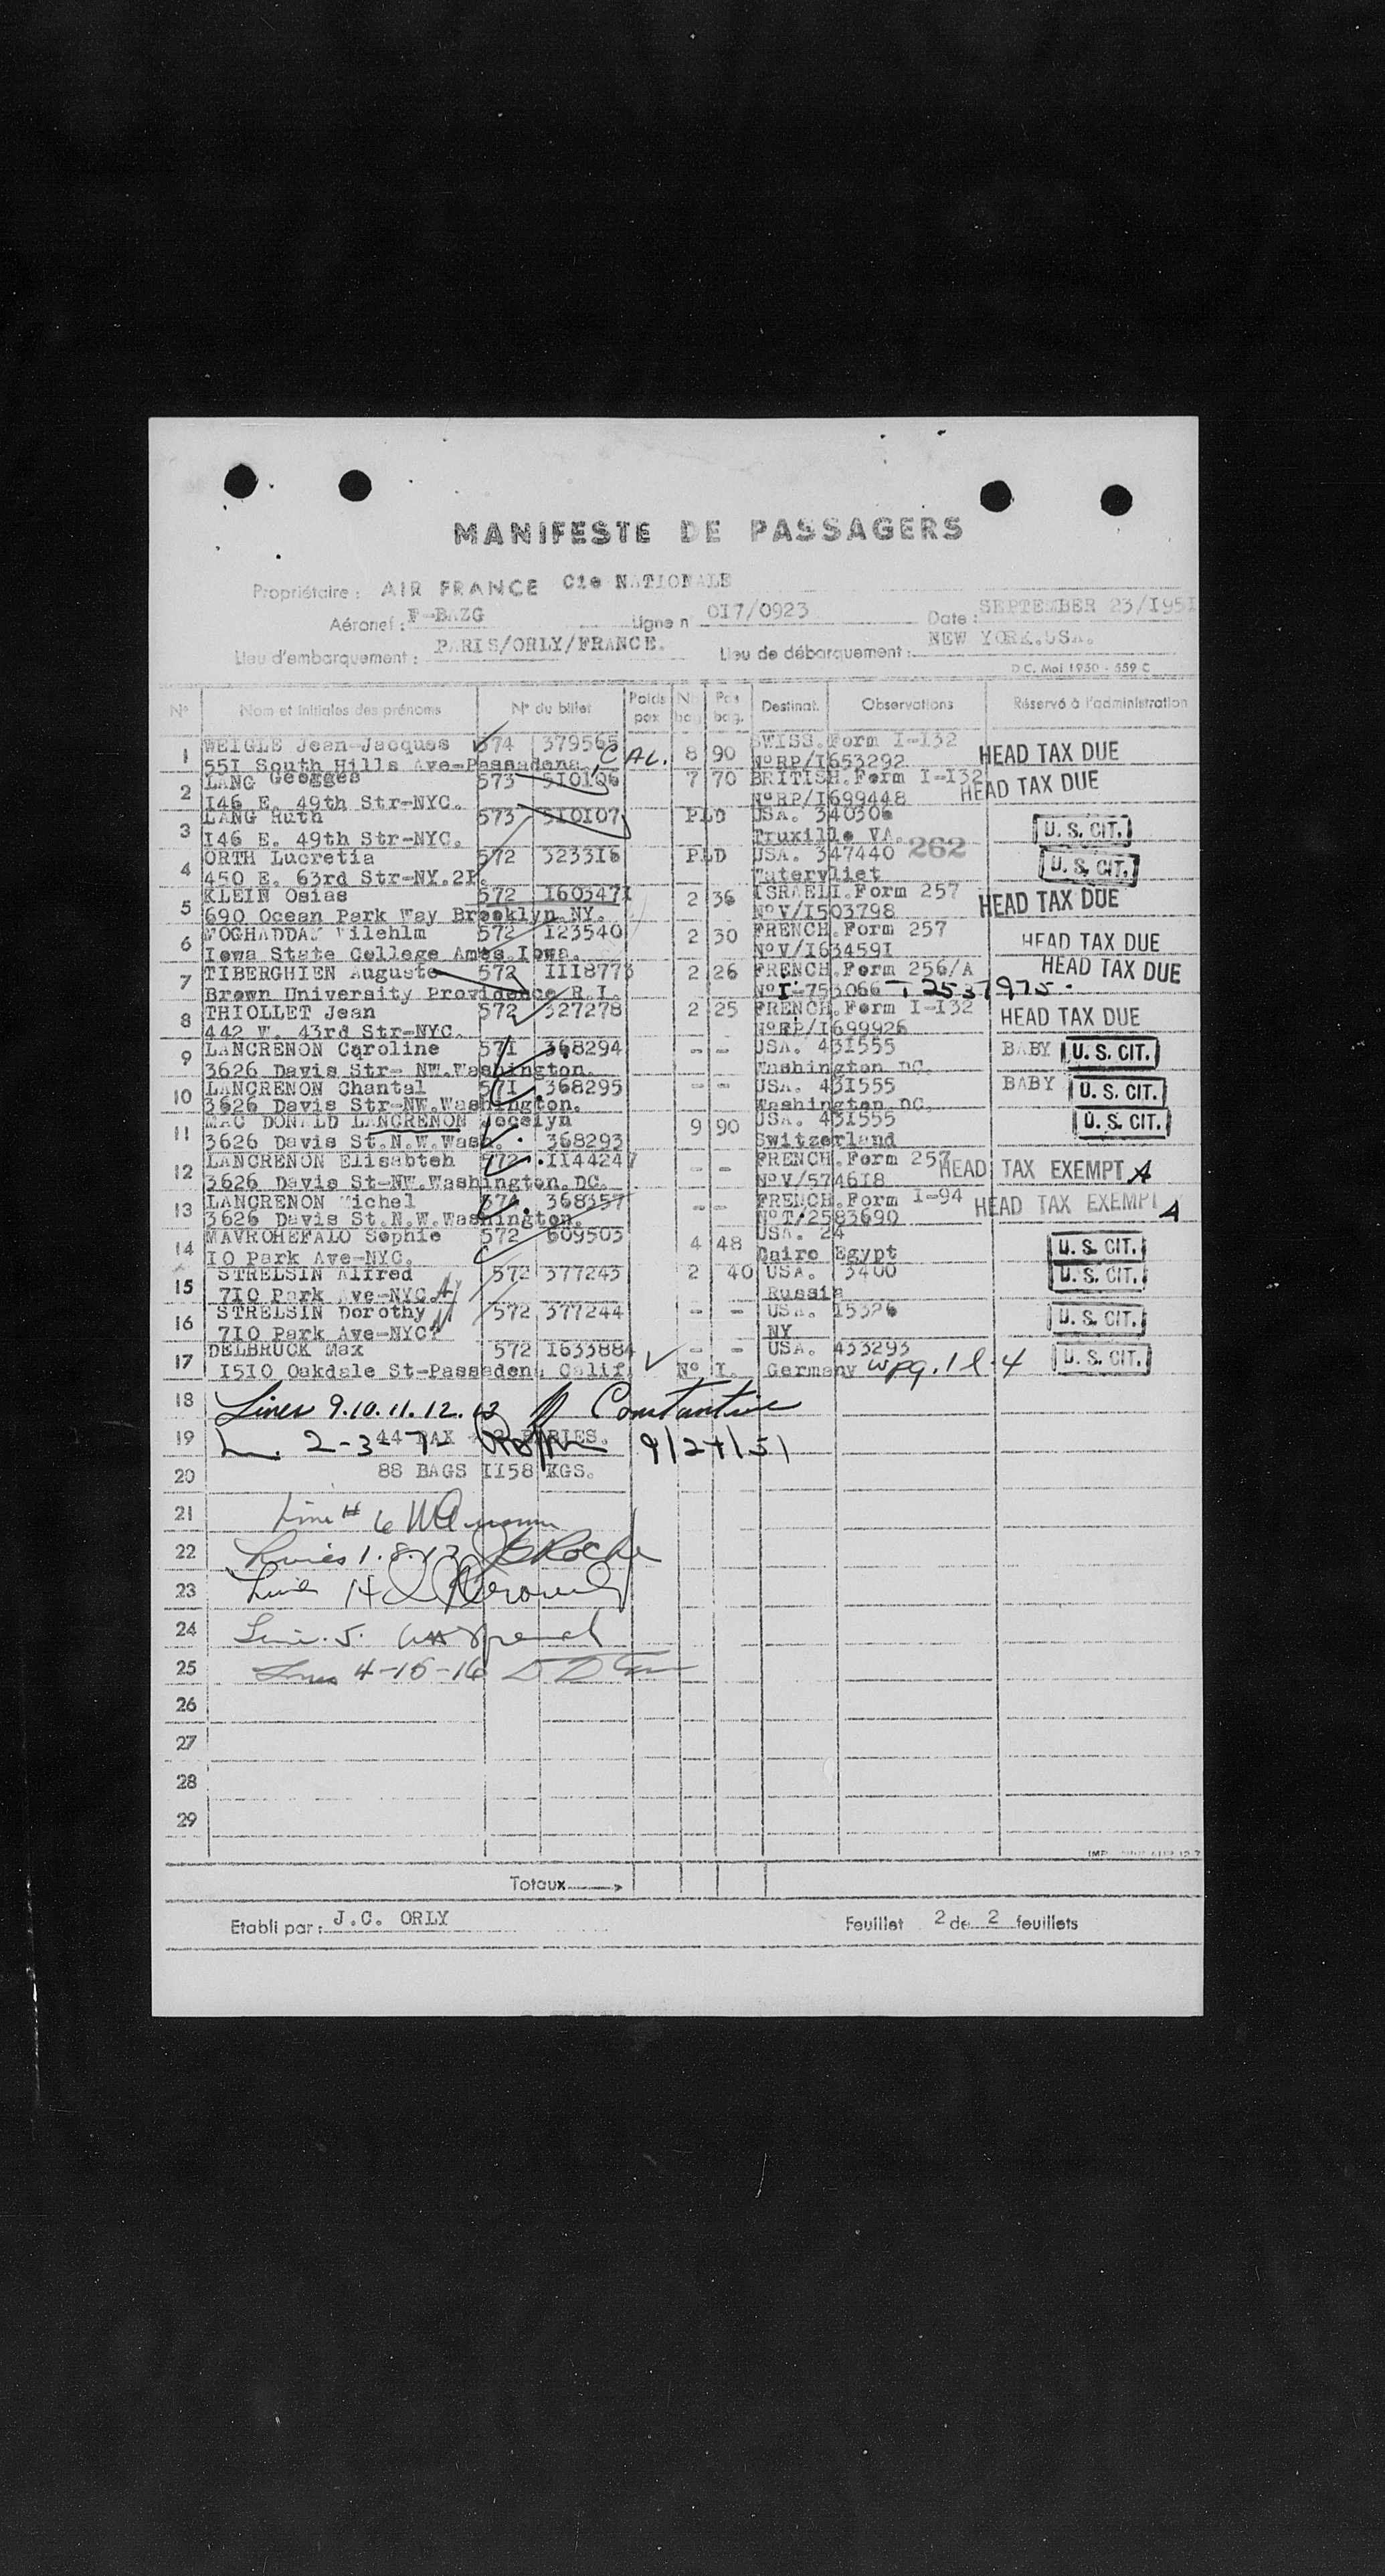 MANIFESTE DE PASSAGERS
Propriétaire : AIR FRANCE Cie NATIONALE
Aéronef : F-BAZG Ligne n° 0I7/0923 Date : SEPTEMBER 23/I95I
Lieu d'embarquement : PARIS/ORLY/FRANCE. Lieu de débarquement : NEW YORK.USA.
D C. Mai 1950 - 559 C
N° Nom et initiales des prénoms N° du billet Poids pax Nb bag. Pds bag. Destinat. Observations Réservé à l'administration
1 WEIGLE Jean-Jacques 574 379565 8 90 SWISS.Form I-I32 HEAD TAX DUE
55I South Hills Ave-Passadena, CAL. N°RP/I653292
2 LANG Geogges 573 5I0I06 7 70 BRITISH.Form I-I32 HEAD TAX DUE
I46 E. 49th Str-NYC. N°RP/I699448
3 LANG Ruth 573 5I0I07 PLD USA. 340306 U. S. CIT.
I46 E. 49th Str-NYC. Truxille VA.
4 ORTH Lucretia 572 3233I6 PLD USA. 347440 262 U. S. CIT.
450 E. 63rd Str-NY.2I. Watervliet
5 KLEIN Osias 572 I60347I 2 36 ISRAELI.Form 257 HEAD TAX DUE
690 Ocean Park Way Brooklyn.NY. N°V/I503798
6 MOGHADDAM Wilehlm 572 I23540 2 30 FRENCH.Form 257 HEAD TAX DUE
Iowa State College Ames.Iowa. N°V/I63459I
7 TIBERGHIEN Auguste 572 III8773 2 26 FRENCH.Form 256/A HEAD TAX DUE
Brown University Providence R.I. N°I-753066 T 2537975.
8 THIOLLET Jean 572 327278 2 25 FRENCH.Form I-I32 HEAD TAX DUE
442 W. 43rd Str-NYC. N°RP/I699926
9 LANCRENON Caroline 57I 368294 - - USA. 43I555 BABY U. S. CIT.
3626 Davis Str- NW.Washington. Washington DC.
10 LANCRENON Chantal 57I 368295 - - USA. 43I555 BABY U. S. CIT.
3626 Davis Str-NW.Washington. Washington DC.
11 MAC DONALD LANCRENON Jocelyn 9 90 USA. 43I555 U. S. CIT.
3626 Davis St.N.W.Wash. 368293 Switzerland
12 LANCRENON Elisabteh 572 II44247 - - FRENCH.Form 257 HEAD TAX EXEMPT A
3626 Davis St-NW.Washington.DC. N°V/5746I8
13 LANCRENON Michel 574 368357 - - FRENCH.Form I-94 HEAD TAX EXEMPT A
3626 Davis St.N.W.Washington. N°T/2583690
14 MAVROHEFALO Sophie 572 609503 4 48 USA. 24 U. S. CIT.
I0 Park Ave-NYC. Cairo Egypt
15 STRELSIN Alfred 572 377243 2 40 USA. 3400 U. S. CIT.
7I0 Park Ave-NYC. Russia
16 STRELSIN Dorothy 572 377244 - - USA. I5326 U. S. CIT.
7I0 Park Ave-NYC? NY
17 DELBRUCK Max 572 I633884 - - USA. 433293 U. S. CIT.
I5I0 Oakdale St-Passadena Calif. N° I. Germany w pg. 1 l. 4
18 Lines 9.10.11.12.13 Constantine
19 2-3-7- 44 PAX 2 BABIES. 9/24/51
20 88 BAGS II58 KGS.
21 Line # 6
22 Lines 1.8.17 Roche
23 Line 14
24 Line. 5.
25 Lines 4-15-16
26
27
28
29
Totaux
Etabli par : J.C. ORLY Feuillet 2 de 2 feuillets